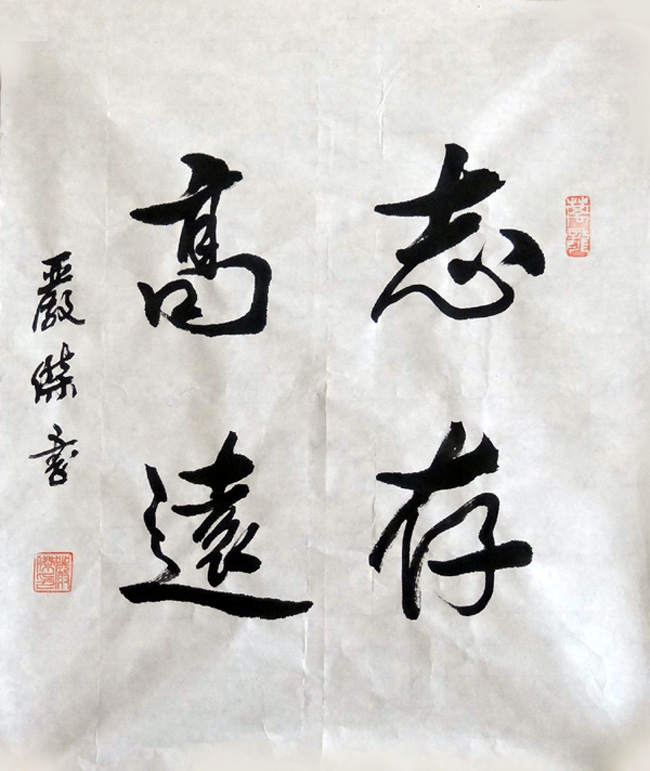 志存
高遠
嚴傑書